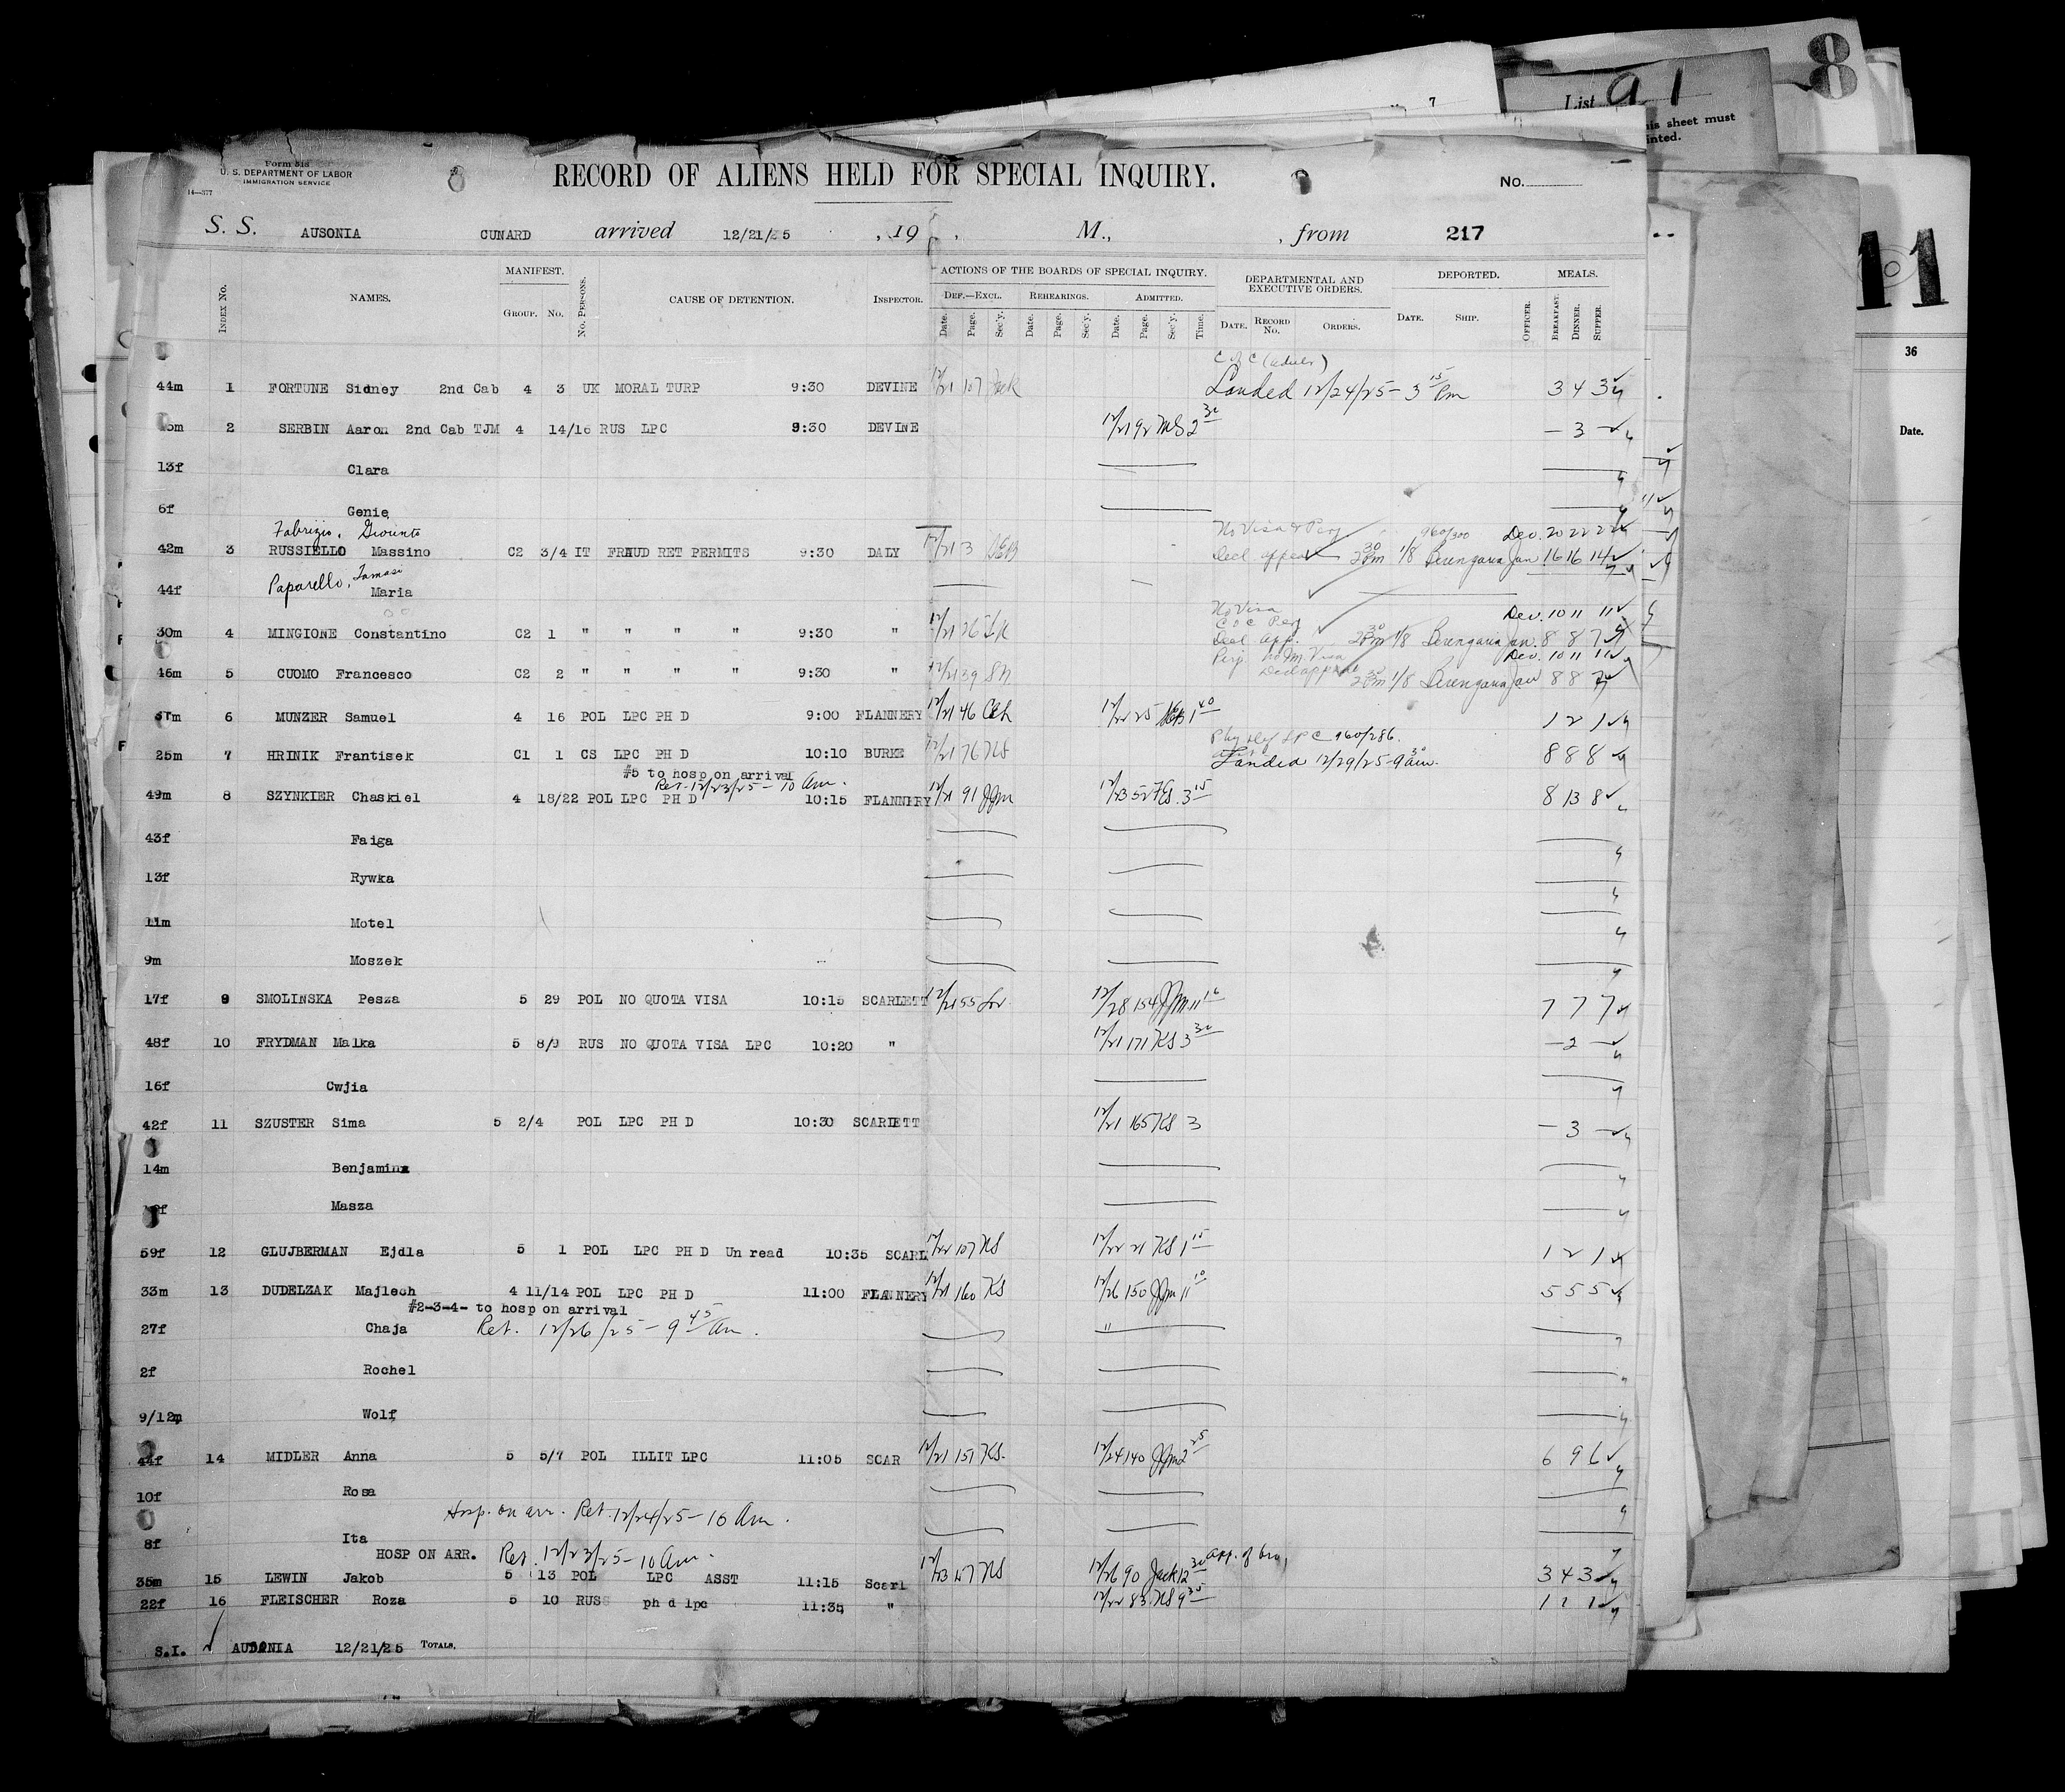 8
List 91
7
his sheet must
inted.
11
36
Date.
Form 518
U. S. DEPARTMENT OF LABOR
IMMIGRATION SERVICE
14—377
RECORD OF ALIENS HELD FOR SPECIAL INQUIRY.
No.
S. S. AUSONIA CUNARD arrived 12/21/25 , 19 , M., , from 217
INDEX No. NAMES. MANIFEST. GROUP. No. No. PERSONS. CAUSE OF DETENTION. INSPECTOR. ACTIONS OF THE BOARDS OF SPECIAL INQUIRY. DEF.—EXCL. Date. Page. Sec'y. REHEARINGS. Date. Page. Sec'y. ADMITTED. Date. Page. Sec'y. Time. DEPARTMENTAL AND EXECUTIVE ORDERS. DATE. RECORD No. ORDERS. DEPORTED. DATE. SHIP. OFFICER. MEALS. BREAKFAST. DINNER. SUPPER.
44m 1 FORTUNE Sidney 2nd Cab 4 3 UK MORAL TURP 9:30 DEVINE 12/21 107 Jack Landed 12/24/25 - 3 15 Pm 3 4 3
2 SERBIN Aaron 2nd Cab TJM 4 14/16 RUS LPC 9:30 DEVINE 12/21 92 MS 2 30 — 3 —
13f Clara
6f Genie
Fabrizio, Giounto
42m 3 RUSSIELLO Massino C2 3/4 IT FRAUD RET PERMITS 9:30 DALY 12/21 3 No Visa & Perj 960/300 Dec. 20 22 22
Decl appeal 2 30 Pm 1/8 Berengaria Jan 16 16 14
Paparello, Tomasi
44f Maria
30m 4 MINGIONE Constantino C2 1 " " " " 9:30 " 12/21 26 No Visa Dec. 10 11 11
Decl app. 2 30 Pm 1/8 Berengaria Jan. 8 8 7
46m 5 CUOMO Francesco C2 2 " " " " 9:30 " 12/21 39 Dec. 10 11 11
Decl appeal 2 30 Pm 1/8 Berengaria Jan 8 8 7
37m 6 MUNZER Samuel 4 16 POL LPC PH D 9:00 FLANNERY 12/21 46 12/22 25 1 40 1 2 1
25m 7 HRINIK Frantisek C1 1 CS LPC PH D 10:10 BURKE 12/21 76 KS Phy def LPC 960/286
Landed 12/29/25 - 9 30 am. 8 8 8
#5 to hosp on arrival
Ret. 12/23/25 - 10 am.
49m 8 SZYNKIER Chaskiel 4 18/22 POL LPC PH D 10:15 FLANNERY 12/21 91 JJM 12/23 52 KS. 3 15 8 13 8
43f Faiga
13f Rywka
11m Motel
9m Moszek
17f 9 SMOLINSKA Pesza 5 29 POL NO QUOTA VISA 10:15 SCARLETT 12/21 55 12/28 154 JJM 11 7 7 7
48f 10 FRYDMAN Malka 5 8/9 RUS NO QUOTA VISA LPC 10:20 " 12/21 171 KS 3 30 — 2 —
16f Cwjia
42f 11 SZUSTER Sima 5 2/4 POL LPC PH D 10:30 SCARLETT 12/21 165 KS 3 — 3 —
14m Benjamin
Masza
59f 12 GLUJBERMAN Ejdla 5 1 POL LPC PH D Un read 10:35 SCARL 12/22 107 KS 12/22 21 KS 1 15 1 2 1
33m 13 DUDELZAK Majlech 4 11/14 POL LPC PH D 11:00 FLANNERY 12/21 160 KS 12/26 150 JJM 11 10 5 5 5
#2-3-4- to hosp on arrival
27f Chaja Ret. 12/26/25 - 9 45 Am. "
2f Rochel
9/12m Wolf
44f 14 MIDLER Anna 5 5/7 POL ILLIT LPC 11:05 SCAR 12/21 151 KS. 12/24 140 JJM 2 25 6 9 6
10f Rosa
Hosp. on arr. Ret. 12/24/25 - 10 Am.
8f Ita
HOSP ON ARR. Ret. 12/23/25 - 10 Am.
35m 15 LEWIN Jakob 5 13 POL LPC ASST 11:15 Scarl 12/23 47 KS 12/26 90 Jack 12 30 app. of bro, 3 4 3
22f 16 FLEISCHER Roza 5 10 RUS ph d lpc 11:35 " 12/22 83 KS 9 35 1 1 1
S.I. AUSONIA 12/21/25 TOTALS.